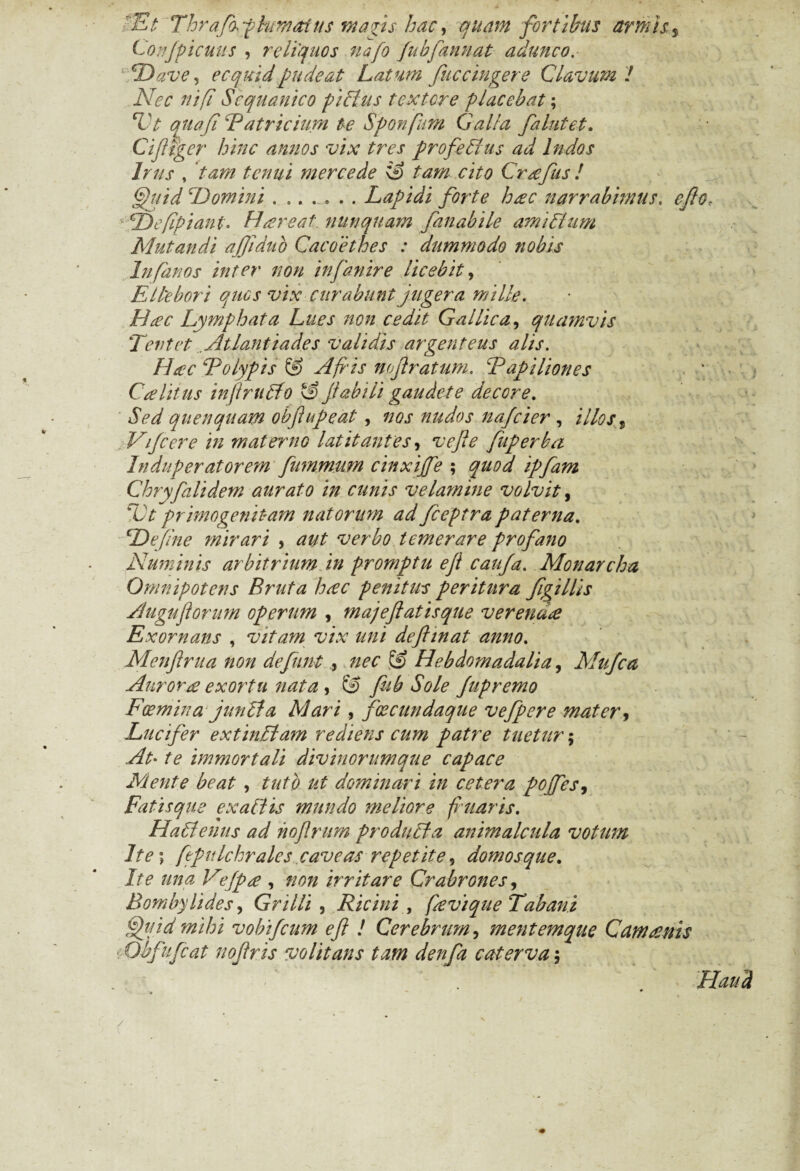 Et Thraso plumatus magis hac, quam fortibus armis,
Conſpicuus , reliquos naſo ſubſannat adunco.
Dave, ecquid pudeat Latum ſuccingere Clavum !
Nec niſi Sequanico pictus textore placebat ;
Ut quaſi Patricium te Sponſum Galla ſalutet.
Ciſtiger hinc annos vix tres profectus ad Indos
Irus , tam tenui mercede & tam cito Cræſus !
Quid Domini . . . . . . . Lapidi forte hæc narrabimus. eſto.
Deſipiant. Hæreat nunquam ſanabile amictum
Mutandi aſſiduò Cacoëthes : dummodo nobis
Inſanos inter non inſanire licebit,
Ellebori quos vix curabunt jugera mille.
Hæc Lymphata Lues non cedit Gallica, quamvis
Tentet Atlantiades validis argenteus alis.
Hæc Polypis & Afris noſtratum. Papiliones
Cælitus inſtructo & ſtabili gaudete decore.
Sed quenquam obſtupeat , nos nudos naſcier , illos,
Viſcere in materno latitantes, veſte ſuperba
Induperatorem ſummum cinxiſſe ; quod ipſam
Chryſalidem aurato in cunis velamine volvit,
Ut primogenitam natorum ad ſceptra paterna.
Deſine mirari , aut verbo temerare profano
Numinis arbitrium in promptu eſt cauſa. Monarcha
Omnipotens Bruta hæc penitus peritura ſigillis
Auguſtorum operum , majeſtatisque verendæ
Exornans , vitam vix uni deſtinat anno.
Menſtrua non deſunt , nec & Hebdomadalia, Muſca
Auroræ exortu nata , & ſub Sole ſupremo
Fœmina juncta Mari , fœcundaque veſpere mater,
Lucifer extinctam rediens cum patre tuetur ;
At te immortali divinorumque capace
Mente beat , tutò ut dominari in cetera poſſes,
Fatisque exactis mundo meliore fruaris.
Hactenus ad noſtrum producta animalcula votum
Ite ; ſepulchrales caveas repetite, domosque.
Ite una Veſpæ , non irritare Crabrones,
Bombylides, Grilli , Ricini , ſævique Tabani
Quid mihi vobiſcum eſt ! Cerebrum, mentemque Camænis
Obfuſcat noſtris volitans tam denſa caterva ;
Haud